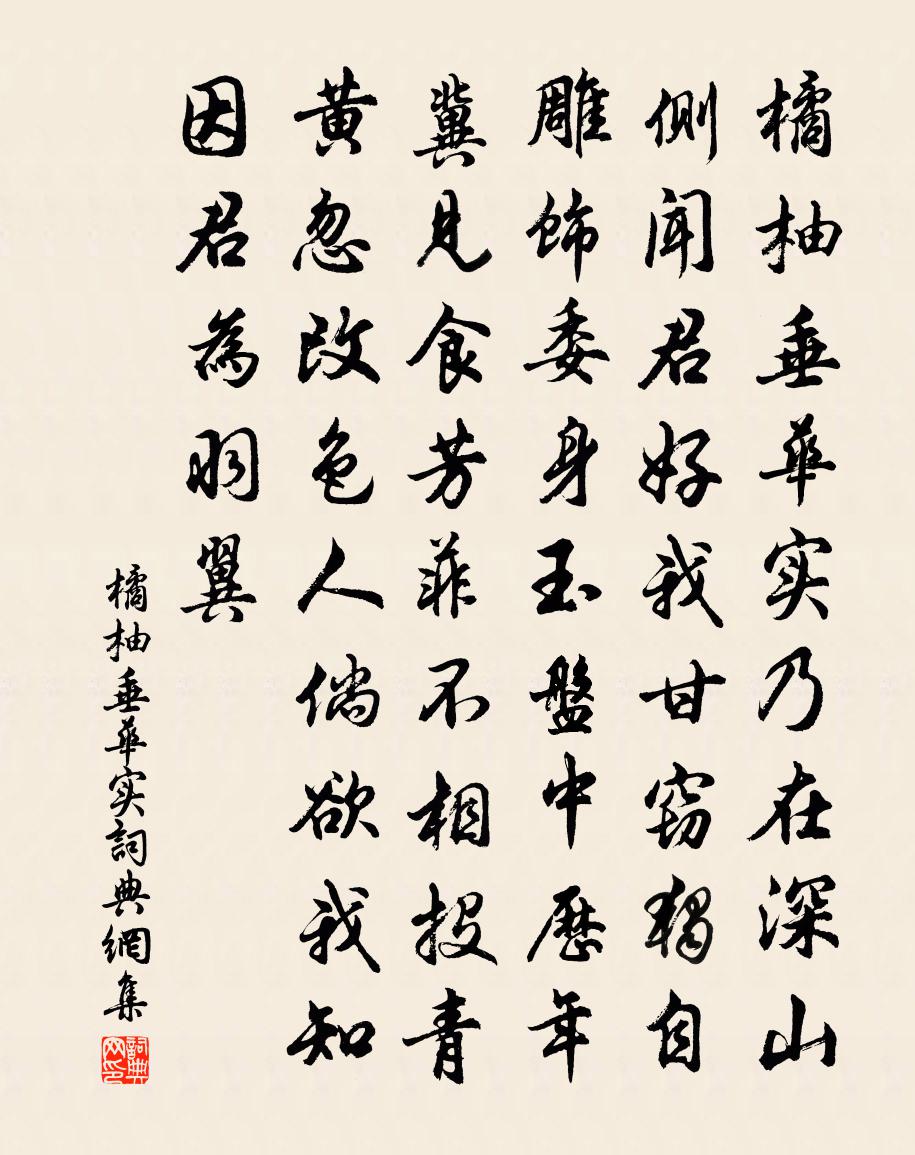 橘柚垂華实乃在深山
侧闻君好我甘窃獨自
雕饰委身玉盤中歷年
冀見食芳菲不相投青
黄忽改色人倘欲我知
因君為羽翼
橘柚垂華实詞典網集
詞典网印